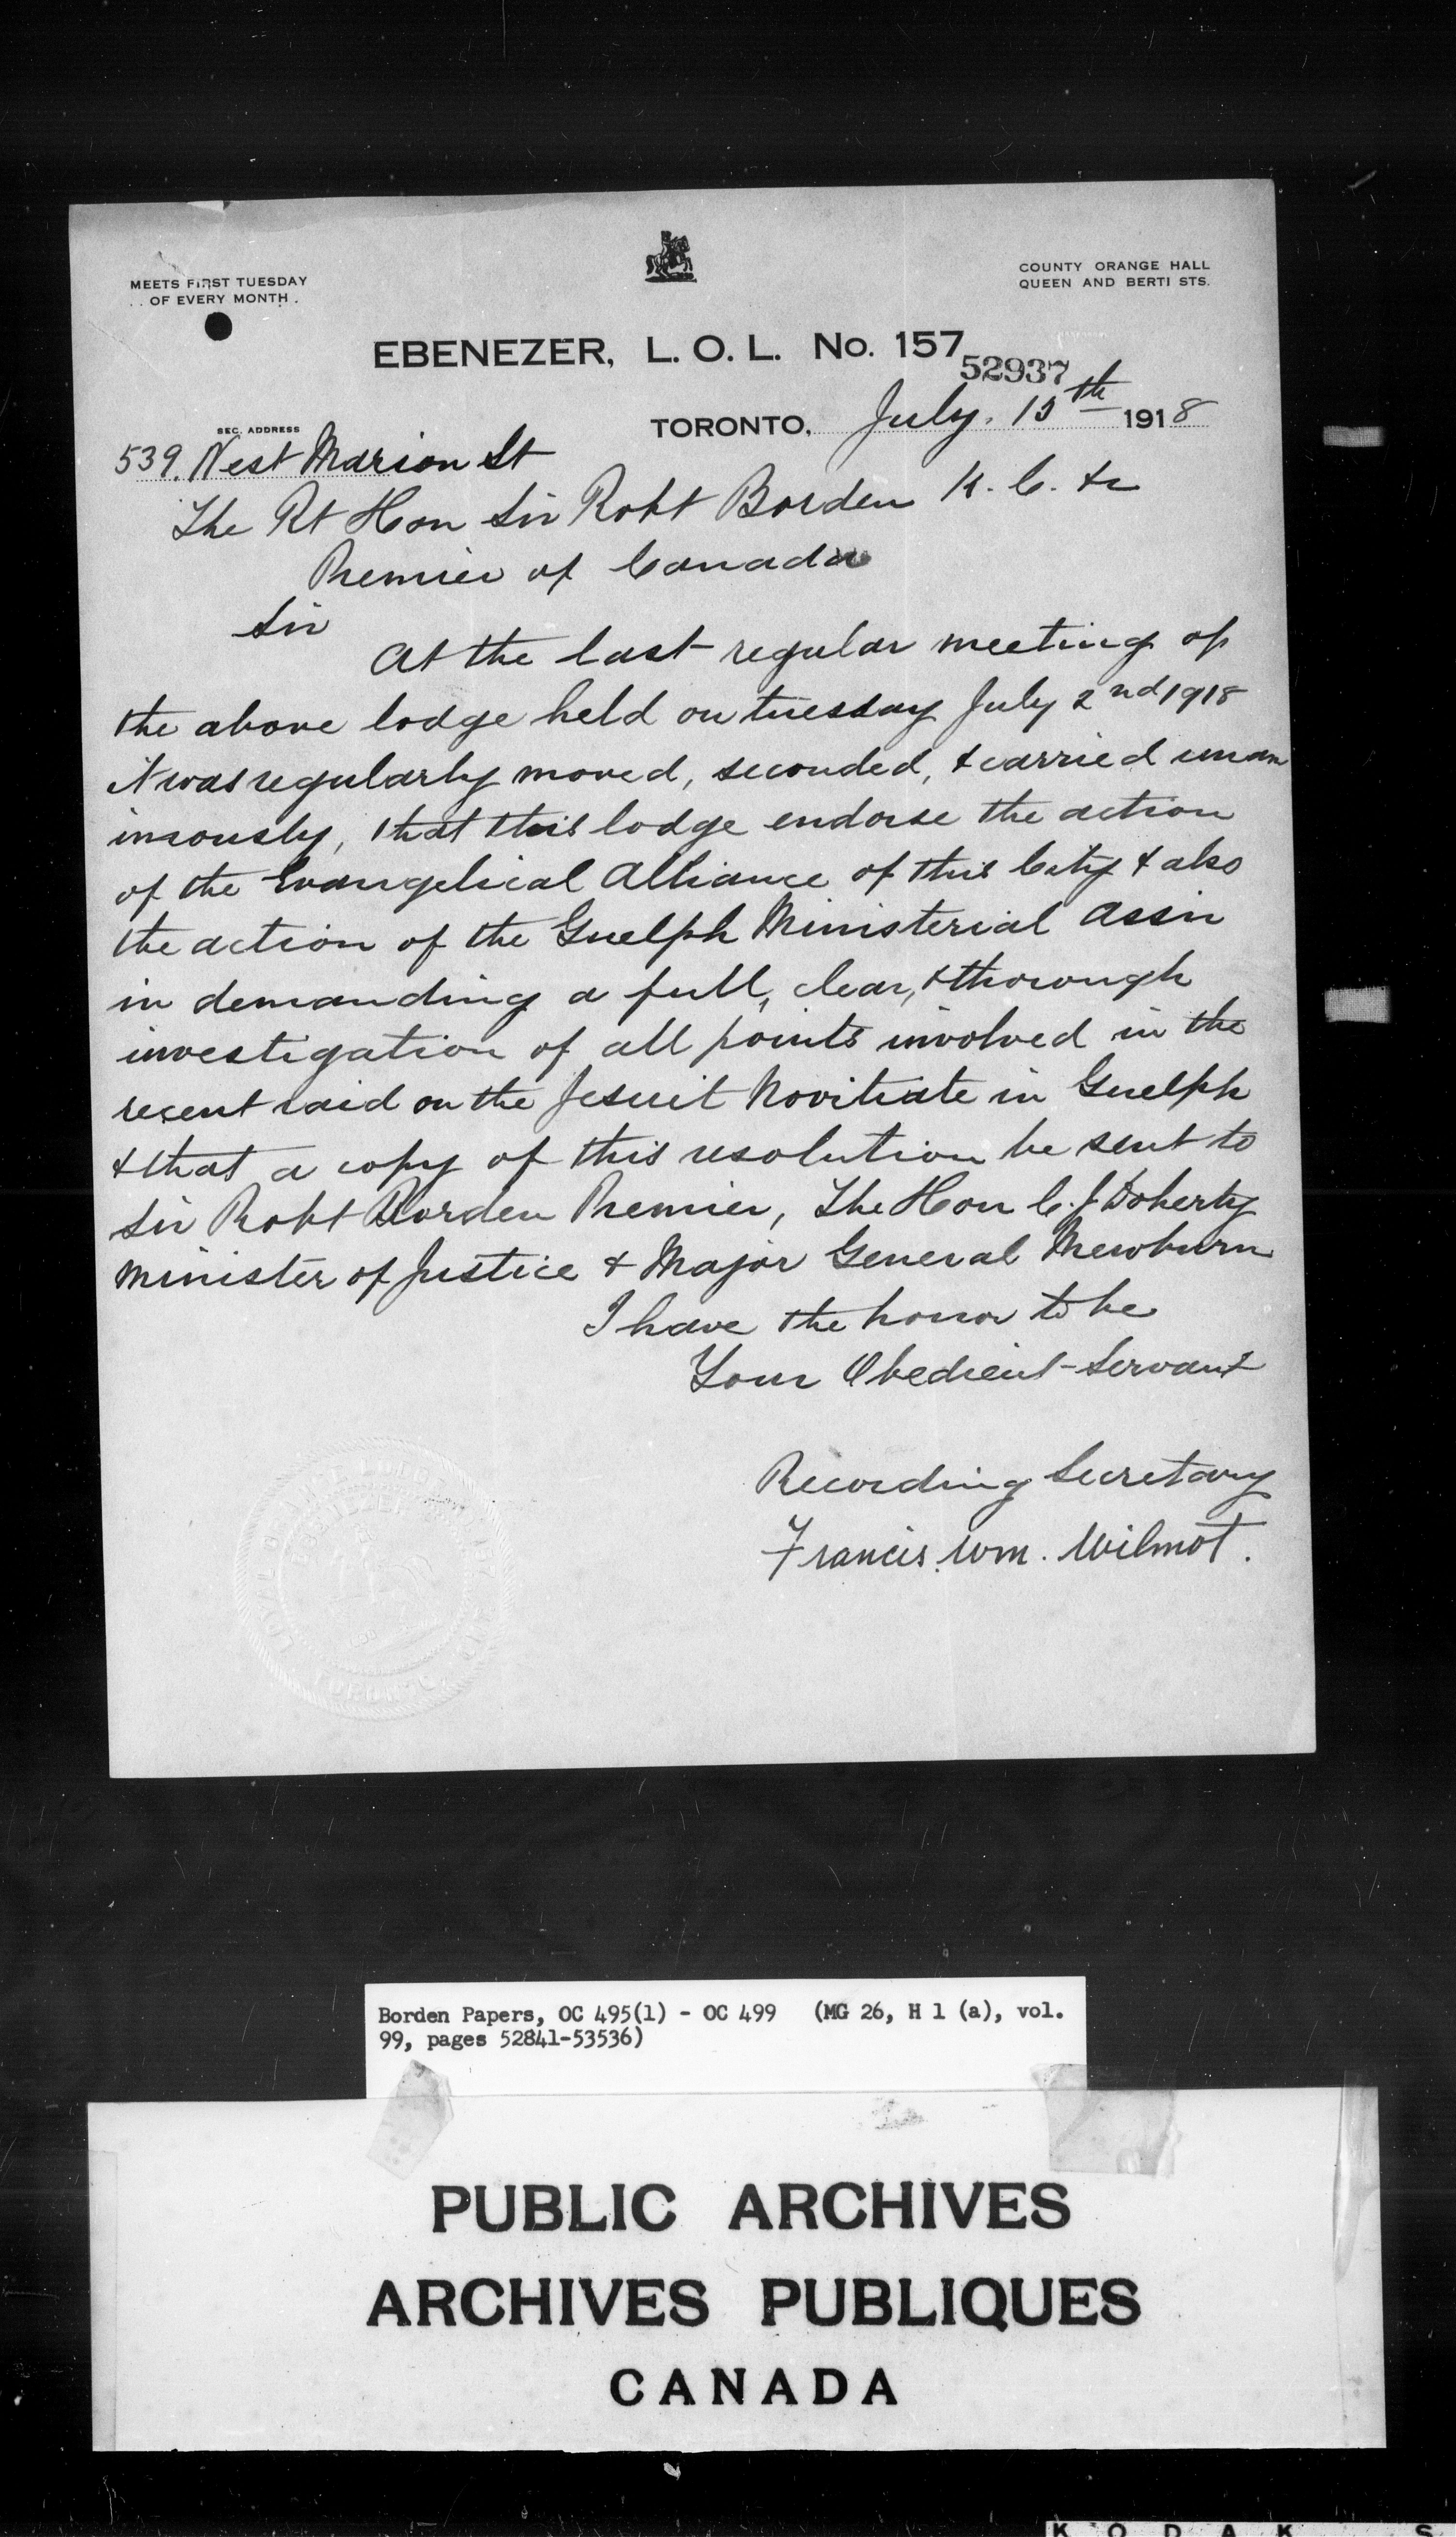 MEETS FIRST TUESDAY
OF EVERY MONTH.
COUNTY ORANGE HALL
QUEEN AND BERTI STS.
EBENEZER, L. O. L. No. 157
52937
TORONTO, July. 15th 1918
SEC. ADDRESS
539. West Marion St
The Rt Hon Sir Robt Borden K. C. &c
Premier of Canada
Sir
At the last regular meeting of
the above lodge held on tuesday July 2nd 1918
it was regularly moved, seconded, & carried unan
imously, that this lodge endorse the action
of the Evangelical Alliance of this City & also
the action of the Guelph Ministerial Assn
in demanding a full, clear, & thorough
investigation of all points involved in the
recent raid on the Jesuit Novitiate in Guelph
& that a copy of this resolution be sent to
Sir Robt Borden Premier, The Hon C. J Doherty
minister of Justice & Major General Mewburn
I have the honor to be
Your Obedient Servant
Recording Secretary
Francis Wm. Wilmot.
Borden Papers, OC 495(1) - OC 499 (MG 26, H 1 (a), vol.
99, pages 52841-53536)
PUBLIC ARCHIVES
ARCHIVES PUBLIQUES
CANADA
KODAK S